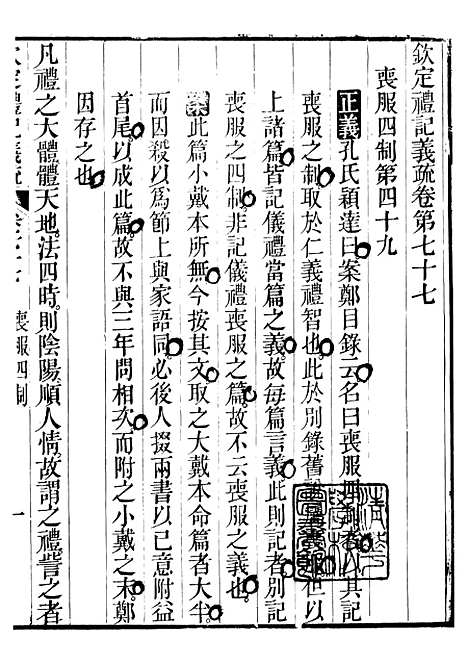 欽定禮記義疏卷第七十七
喪服四制第四十九
正義孔氏穎達曰案鄭目錄云名曰喪服四制者以其記
喪服之制取於仁義禮智也此於別錄舊說屬喪服以
上諸篇皆記儀禮當篇之義故每篇言義此則記者別記
喪服之四制非記儀禮喪服之篇故不云喪服之義也
案此篇小戴本所無今按其文取之大戴本命篇者大半
而因殺以爲節上與家語同必後人掇兩書以已意附益
首尾以成此篇故不與三年問相次而附之小戴之末鄭
因存之也
凡禮之大體體天地法四時則陰陽順人情故謂之禮訾之者
喪服四制
一